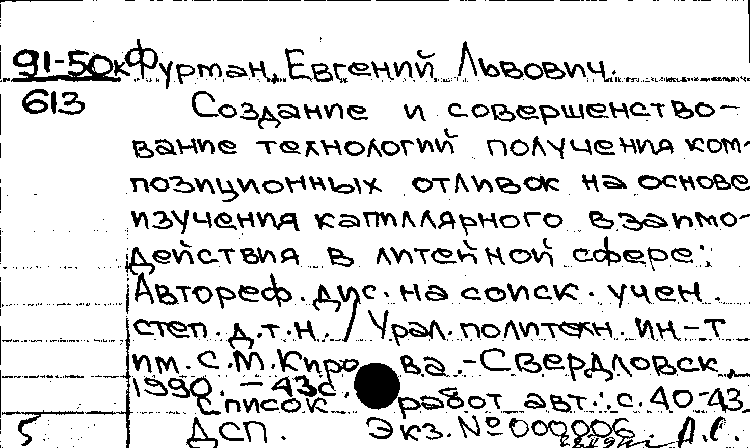 91-50к Фурман, Евгений Львович.
613 Создание и совершенство-
вание технологий получения ком-
позиционных отливок на основе
изучения капиллярного взаимо-
действия в литейной сфере:
Автореф. дис. на соиск. учен.
степ. д.т.н. / Урал. политехн. ин-т
им. С.М. Кирова. - Свердловск,
1990. - 43с.
Список работ авт.: с. 40-43
5 ДСП. Экз. № 000006